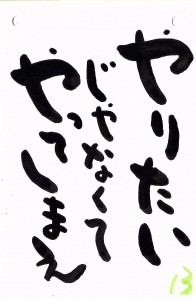 やりたい
じゃなくて
やってしまえ
13